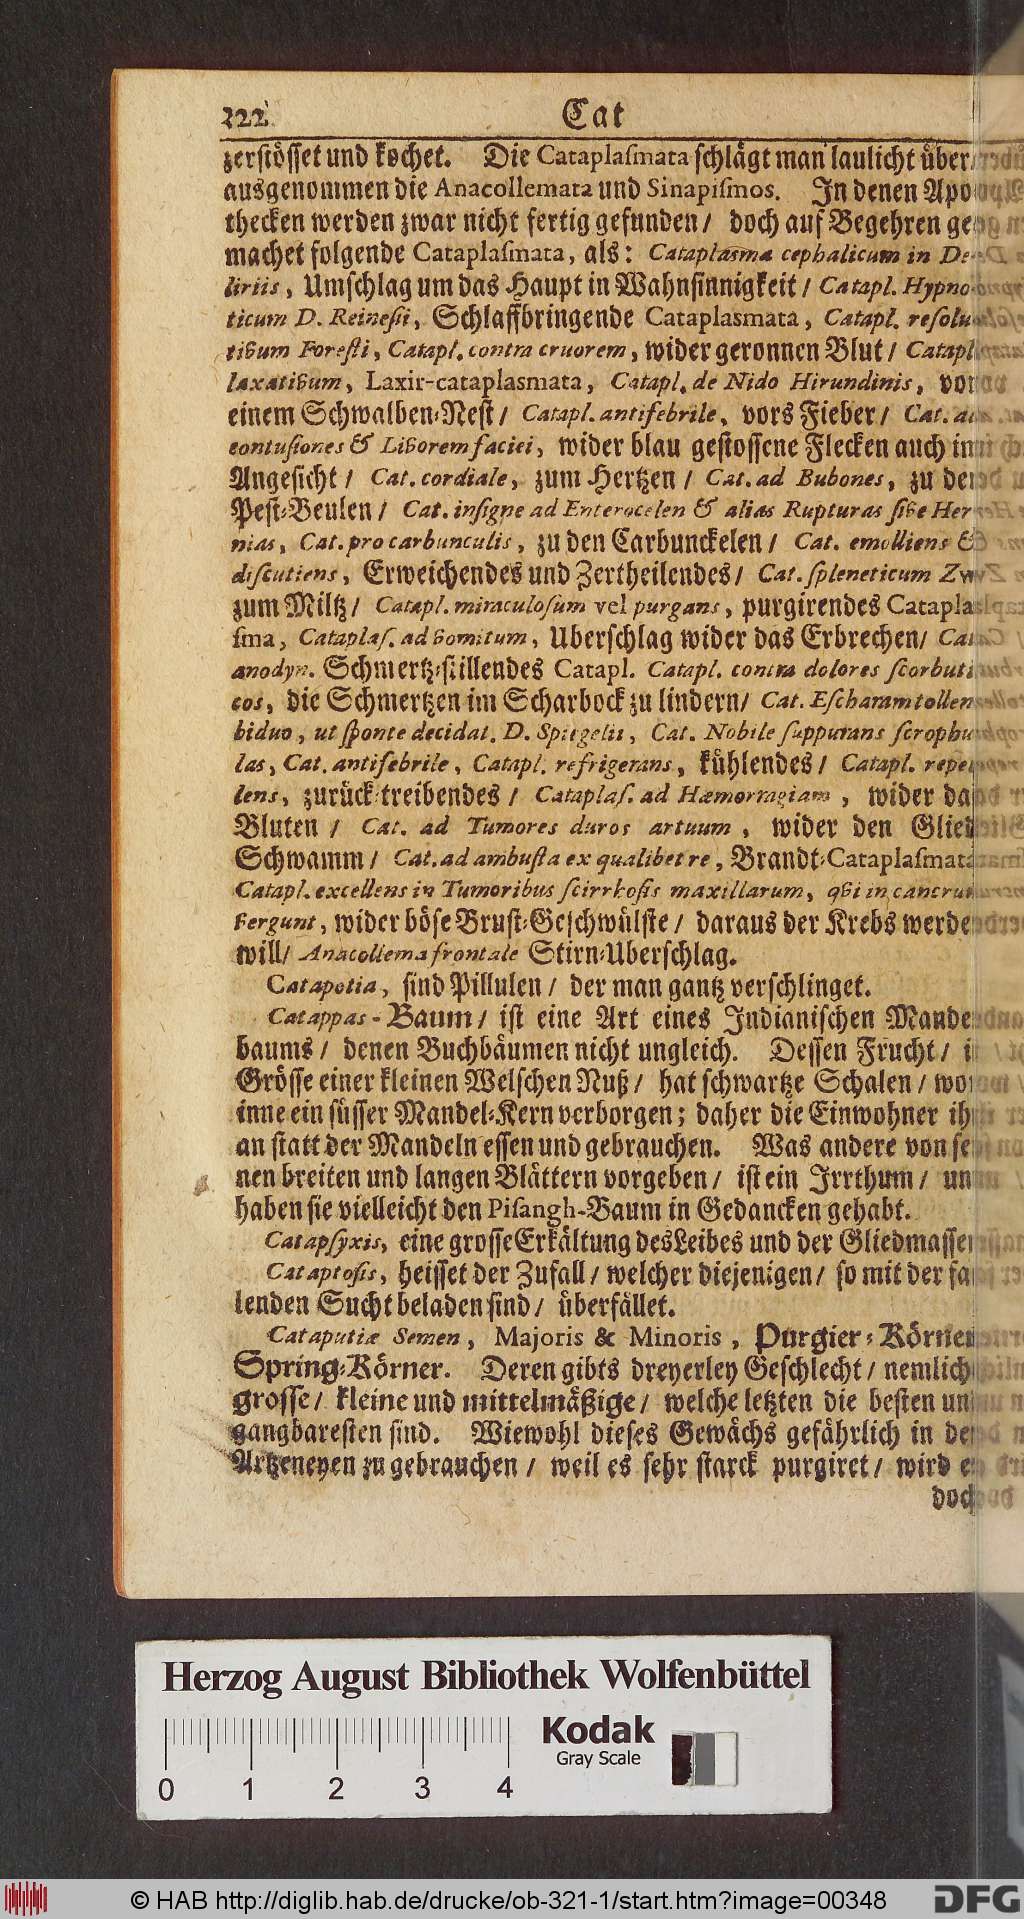 222 Cat
zerstösset und kochet. Die Cataplaſmata schlägt man laulicht über/
ausgenommen die Anacollemata und Sinapiſmos. In denen Apo-
thecken werden zwar nicht fertig gefunden / doch auf Begehren ge-
machet folgende Cataplaſmata, als: Cataplasma cephalicum in De-
liriis, Umschlag um das Haupt in Wahnsinnigkeit / Catapl. Hypno-
ticum D. Reineſii, Schlaffbringende Cataplasmata, Catapl. reſolu-
tivum Foreſti, Catapl. contra cruorem, wider geronnen Blut / Catapl.
laxativum, Laxir-cataplasmata, Catapl. de Nido Hirundinis, von
einem Schwalben-Nest / Catapl. antifebrile, vors Fieber / Cat. ad
contuſiones & Livorem faciei, wider blau gestossene Flecken auch im
Angesicht / Cat. cordiale, zum Hertzen / Cat. ad Bubones, zu den
Pest-Beulen / Cat. inſigne ad Enterocelen & alias Rupturas ſive Her-
nias, Cat. pro carbunculis, zu den Carbunckelen / Cat. emolliens &
diſcutiens, Erweichendes und Zertheilendes / Cat. ſpleneticum Zw
zum Miltz / Catapl. miraculoſum vel purgans, purgirendes Catapla-
ſma, Cataplaſ. ad vomitum, Uberschlag wider das Erbrechen/ Cat.
anodyn. Schmertz-stillendes Catapl. Catapl. contra dolores ſcorbuti-
cos, die Schmertzen im Scharbock zu lindern/ Cat. Eſcharam tollens
biduo, ut ſponte decidat. D. Spigelii, Cat. Nobile ſuppurans ſcrophu-
las, Cat. antifebrile, Catapl. refrigerans, kühlendes / Catapl. repel-
lens, zurück-treibendes / Cataplaſ. ad Hæmorragiam, wider das
Bluten / Cat. ad Tumores duros artuum, wider den Glied-
Schwamm / Cat. ad ambuſta ex qualibet re, Brandt-Cataplaſmata
Catapl. excellens in Tumoribus ſcirrhoſis maxillarum, qvi in cancrum
vergunt, wider böse Brust-Geschwülste / daraus der Krebs werden
will/ Anacollema frontale Stirn-Uberschlag.
Catapotia, sind Pillulen / der man gantz verschlinget.
Catappas-Baum / ist eine Art eines Indianischen Mandel-
baums / denen Buchbäumen nicht ungleich. Dessen Frucht / in
Grösse einer kleinen Welschen Nuß / hat schwartze Schalen / wor-
inne ein süsser Mandel-Kern verborgen; daher die Einwohner ihn
an statt der Mandeln essen und gebrauchen. Was andere von sei-
nen breiten und langen Blättern vorgeben / ist ein Irrthum / und
haben sie vielleicht den Piſangh-Baum in Gedancken gehabt.
Catapſyxis, eine grosse Erkältung des Leibes und der Gliedmassen
Cataptoſis, heisset der Zufall / welcher diejenigen / so mit der fal-
lenden Sucht beladen sind / überfället.
Cataputiæ Semen, Majoris & Minoris, Purgier-Körner
Spring-Körner. Deren gibts dreyerley Geschlecht / nemlich
grosse / kleine und mittelmäßige / welche letzten die besten und
gangbaresten sind. Wiewohl dieses Gewächs gefährlich in den
Artzeneyen zu gebrauchen / weil es sehr starck purgiret / wird es
doch
Herzog August Bibliothek Wolfenbüttel
Kodak
Gray Scale
0 1 2 3 4
© HAB http://diglib.hab.de/drucke/ob-321-1/start.htm?image=00348
DFG